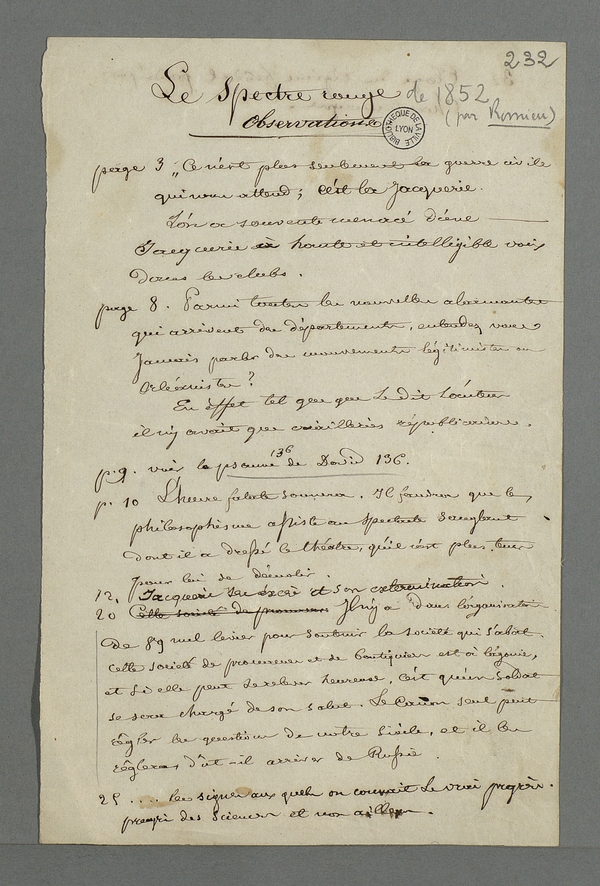 232
Le Spectre rouge de 1852
Observations (par Romieu)
BIBLIOTHEQUE DE LA VILLE LYON
page 3 „ Ce n'est plus seulement la guerre civile
qui nous attend ; c'est la Jacquerie.
L'on a souvent menacé d'une
Jacquerie à haute et intelligible voix
dans les clubs.
page 8. Parmi toutes les nouvelles alarmantes
qui arrivent des départements, entendez vous
Jamais parler de mouvements légitimistes ou
Orléanistes ?
En effet tel que le dit l'auteur
il n'y avait que criailleries républicaines.
p. 9. voir le psaume 136 de David 136.
p. 10 L'heure fatale sonnera. Il faudra que le
philosophisme assiste au spectacle sanglant
dont il a dressé le théâtre, qu'il n'est plus tems
pour lui de démolir.
12, Jacquerie et son extermination.
20 Cette société de procureurs Il n'y a dans l'organisation
de 89 nul levier pour soutenir la société qui s'abat.
Cette société de procureurs et de boutiquiers est à l'agonie,
et si elle peut se relever heureuse, c'est qu'un Soldat
se sera chargé de son salut. Le Canon seul peut
régler les questions de notre siècle, et il les
règlera, dût-il arriver de Russie.
25 .... les signes aux quels on connait le vrai progrès.
progrès des Sciences et non ailleurs.